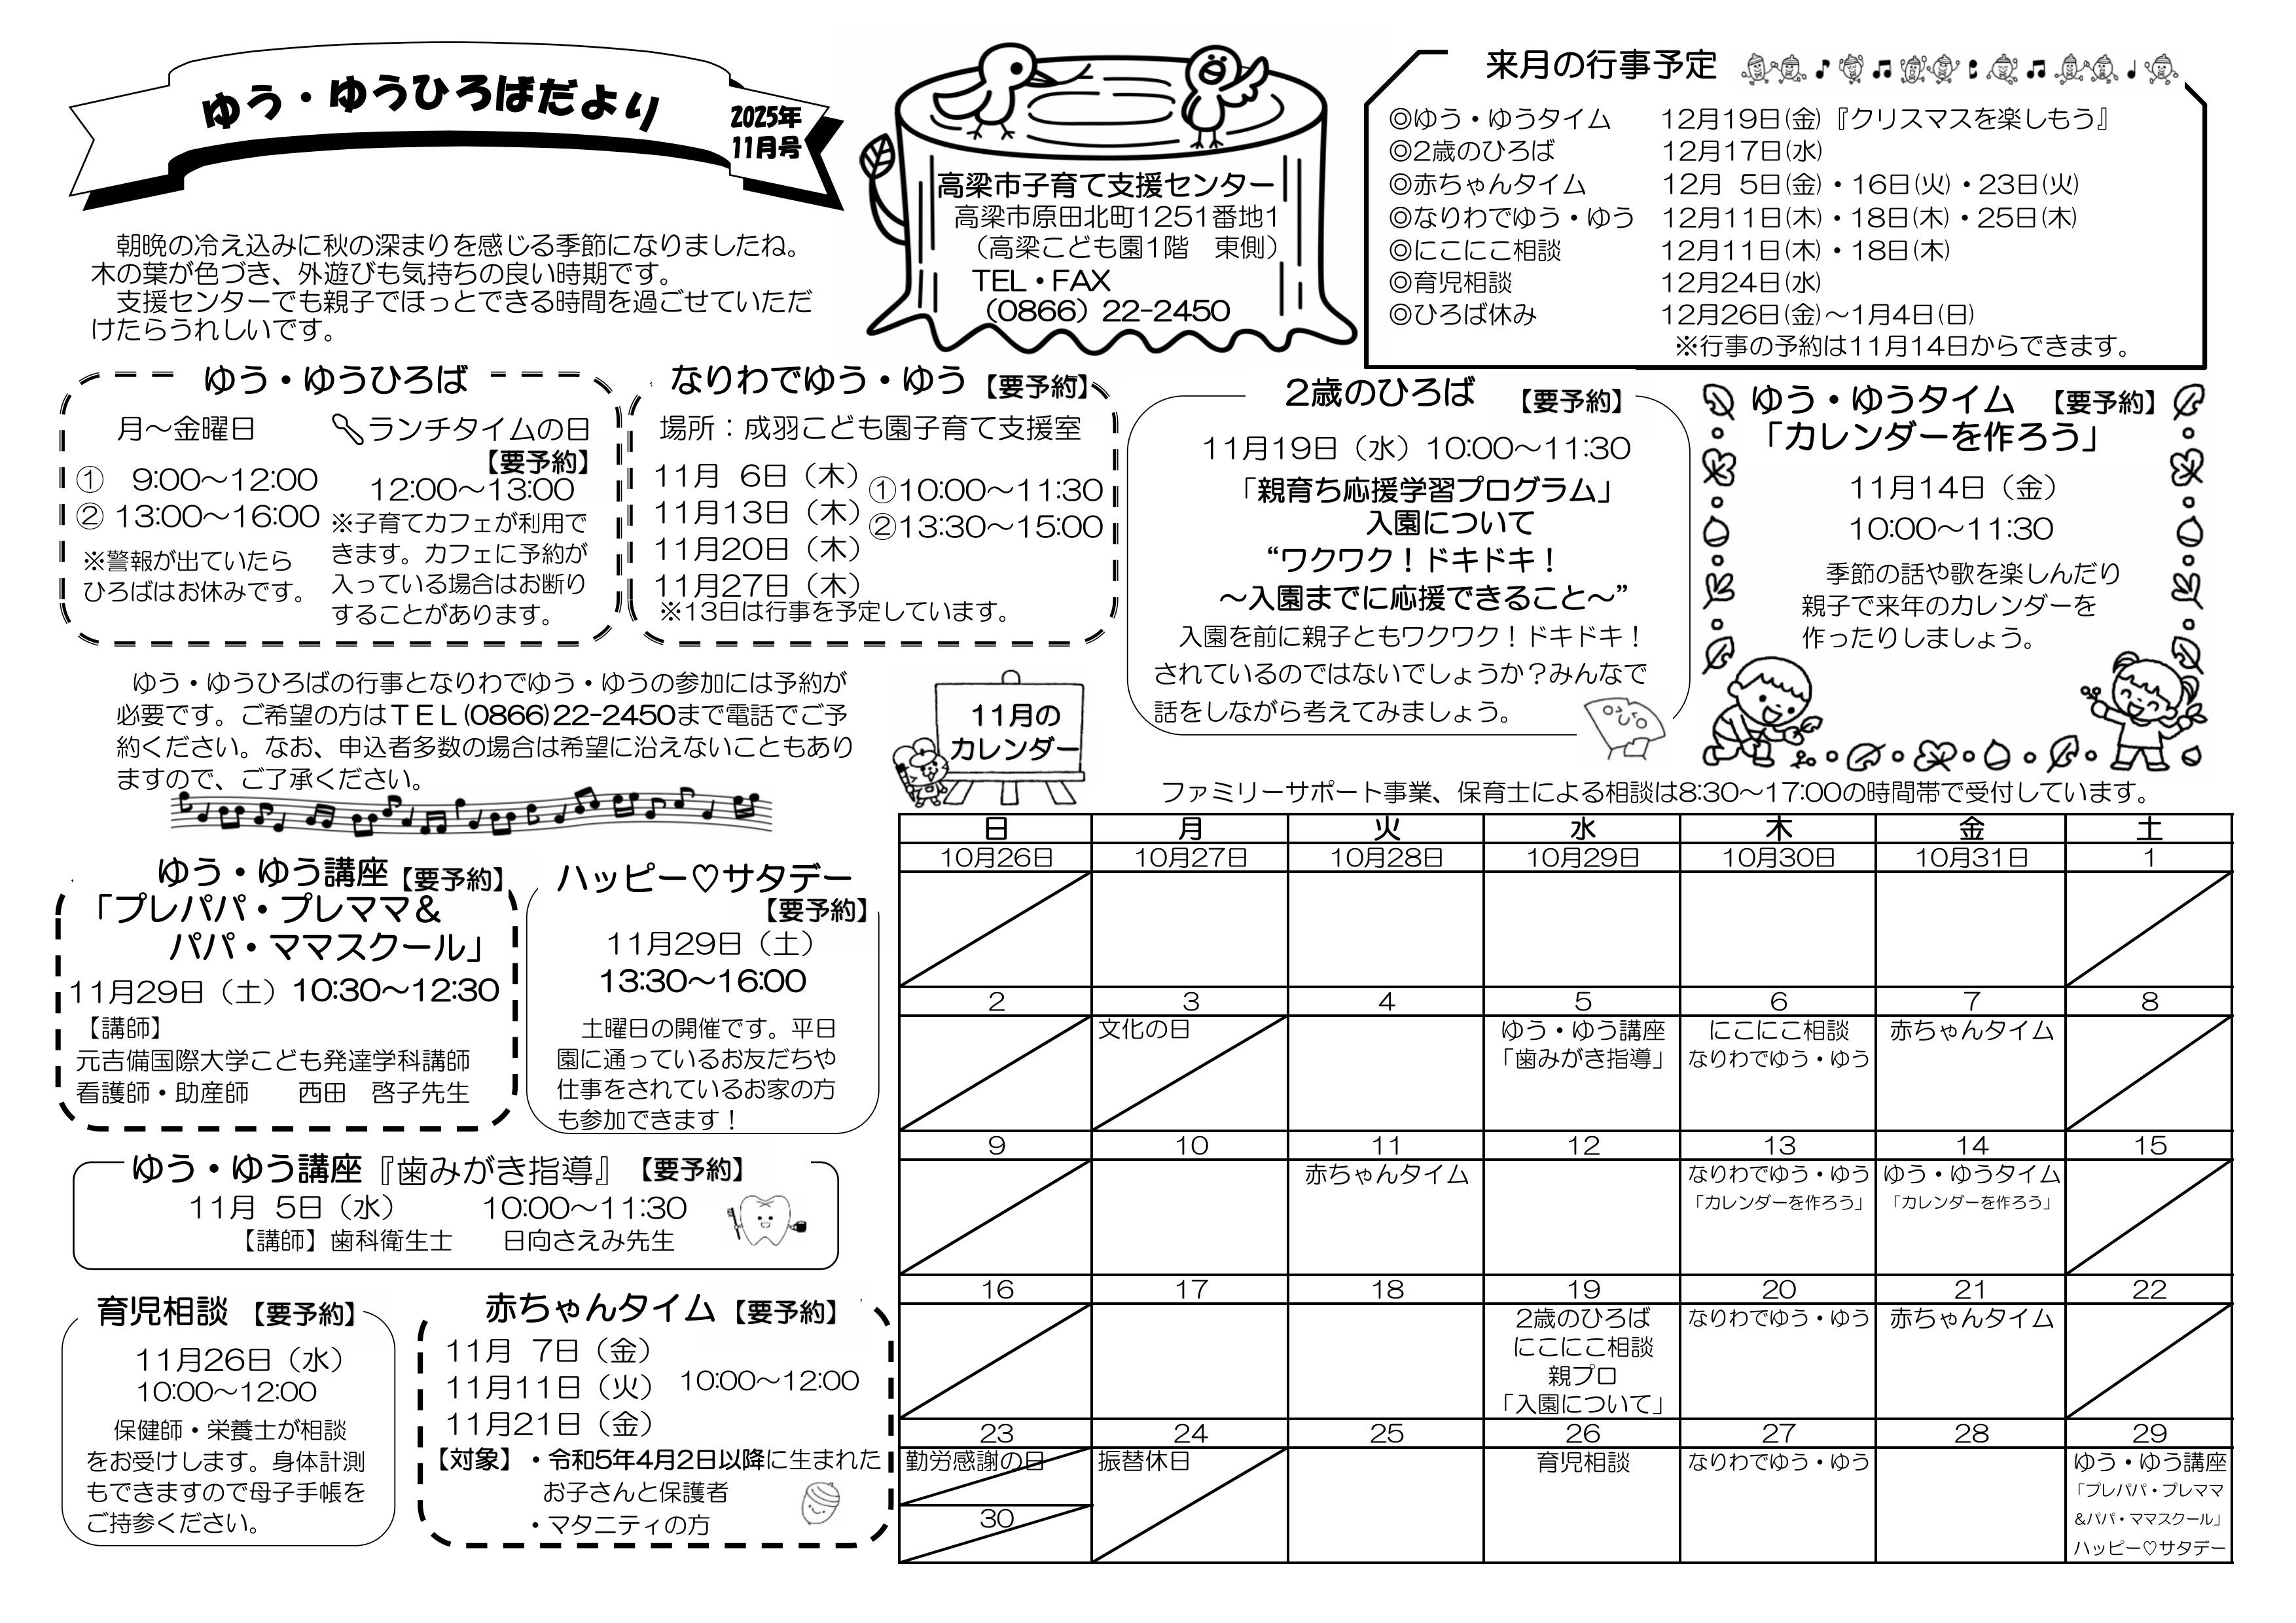 ゆう・ゆうひろばだより
2025年
11月号
朝晩の冷え込みに秋の深まりを感じる季節になりましたね。
木の葉が色づき、外遊びも気持ちの良い時期です。
支援センターでも親子でほっとできる時間を過ごせていただ
けたらうれしいです。
高梁市子育て支援センター
高梁市原田北町1251番地1
（高梁こども園1階　東側）
TEL・FAX
（0866）22-2450
来月の行事予定
◎ゆう・ゆうタイム　12月19日(金)『クリスマスを楽しもう』
◎2歳のひろば　12月17日(水)
◎赤ちゃんタイム　12月 5日(金)・16日(火)・23日(火)
◎なりわでゆう・ゆう　12月11日(木)・18日(木)・25日(木)
◎にこにこ相談　12月11日(木)・18日(木)
◎育児相談　12月24日(水)
◎ひろば休み　12月26日(金)～1月4日(日)
※行事の予約は11月14日からできます。
ゆう・ゆうひろば
月～金曜日
① 9:00～12:00
② 13:00～16:00
※警報が出ていたら
ひろばはお休みです。
ランチタイムの日
【要予約】
12:00～13:00
※子育てカフェが利用で
きます。カフェに予約が
入っている場合はお断り
することがあります。
なりわでゆう・ゆう【要予約】
場所：成羽こども園子育て支援室
11月 6日（木）
11月13日（木）
11月20日（木）
11月27日（木）
①10:00～11:30
②13:30～15:00
※13日は行事を予定しています。
2歳のひろば　【要予約】
11月19日（水）10:00～11:30
「親育ち応援学習プログラム」
入園について
“ワクワク！ドキドキ！
～入園までに応援できること～”
入園を前に親子ともワクワク！ドキドキ！
されているのではないでしょうか？みんなで
話をしながら考えてみましょう。
ゆう・ゆうタイム　【要予約】
「カレンダーを作ろう」
11月14日（金）
10:00～11:30
季節の話や歌を楽しんだり
親子で来年のカレンダーを
作ったりしましょう。
ゆう・ゆうひろばの行事となりわでゆう・ゆうの参加には予約が
必要です。ご希望の方はＴＥＬ(0866)22-2450まで電話でご予
約ください。なお、申込者多数の場合は希望に沿えないこともあり
ますので、ご了承ください。
ゆう・ゆう講座【要予約】
「プレパパ・プレママ＆
パパ・ママスクール」
11月29日（土）10:30～12:30
【講師】
元吉備国際大学こども発達学科講師
看護師・助産師　西田　啓子先生
ハッピー♡サタデー
【要予約】
11月29日（土）
13:30～16:00
土曜日の開催です。平日
園に通っているお友だちや
仕事をされているお家の方
も参加できます！
ゆう・ゆう講座『歯みがき指導』【要予約】
11月 5日（水）　10:00～11:30
【講師】歯科衛生士　日向さえみ先生
育児相談【要予約】
11月26日（水）
10:00～12:00
保健師・栄養士が相談
をお受けします。身体計測
もできますので母子手帳を
ご持参ください。
赤ちゃんタイム【要予約】
11月 7日（金）
11月11日（火）
11月21日（金）
10:00～12:00
【対象】・令和5年4月2日以降に生まれた
お子さんと保護者
・マタニティの方
11月の
カレンダー
ファミリーサポート事業、保育士による相談は8:30～17:00の時間帯で受付しています。
日　月　火　水　木　金　土
10月26日　10月27日　10月28日　10月29日　10月30日　10月31日　1
2　3　4　5　6　7　8
文化の日　ゆう・ゆう講座　にこにこ相談　赤ちゃんタイム
「歯みがき指導」　なりわでゆう・ゆう
9　10　11　12　13　14　15
赤ちゃんタイム　なりわでゆう・ゆう　ゆう・ゆうタイム
「カレンダーを作ろう」　「カレンダーを作ろう」
16　17　18　19　20　21　22
2歳のひろば　なりわでゆう・ゆう　赤ちゃんタイム
にこにこ相談
親プロ
「入園について」
23　24　25　26　27　28　29
勤労感謝の日　振替休日　育児相談　なりわでゆう・ゆう　ゆう・ゆう講座
「プレパパ・プレママ
30　&パパ・ママスクール」
ハッピー♡サタデー